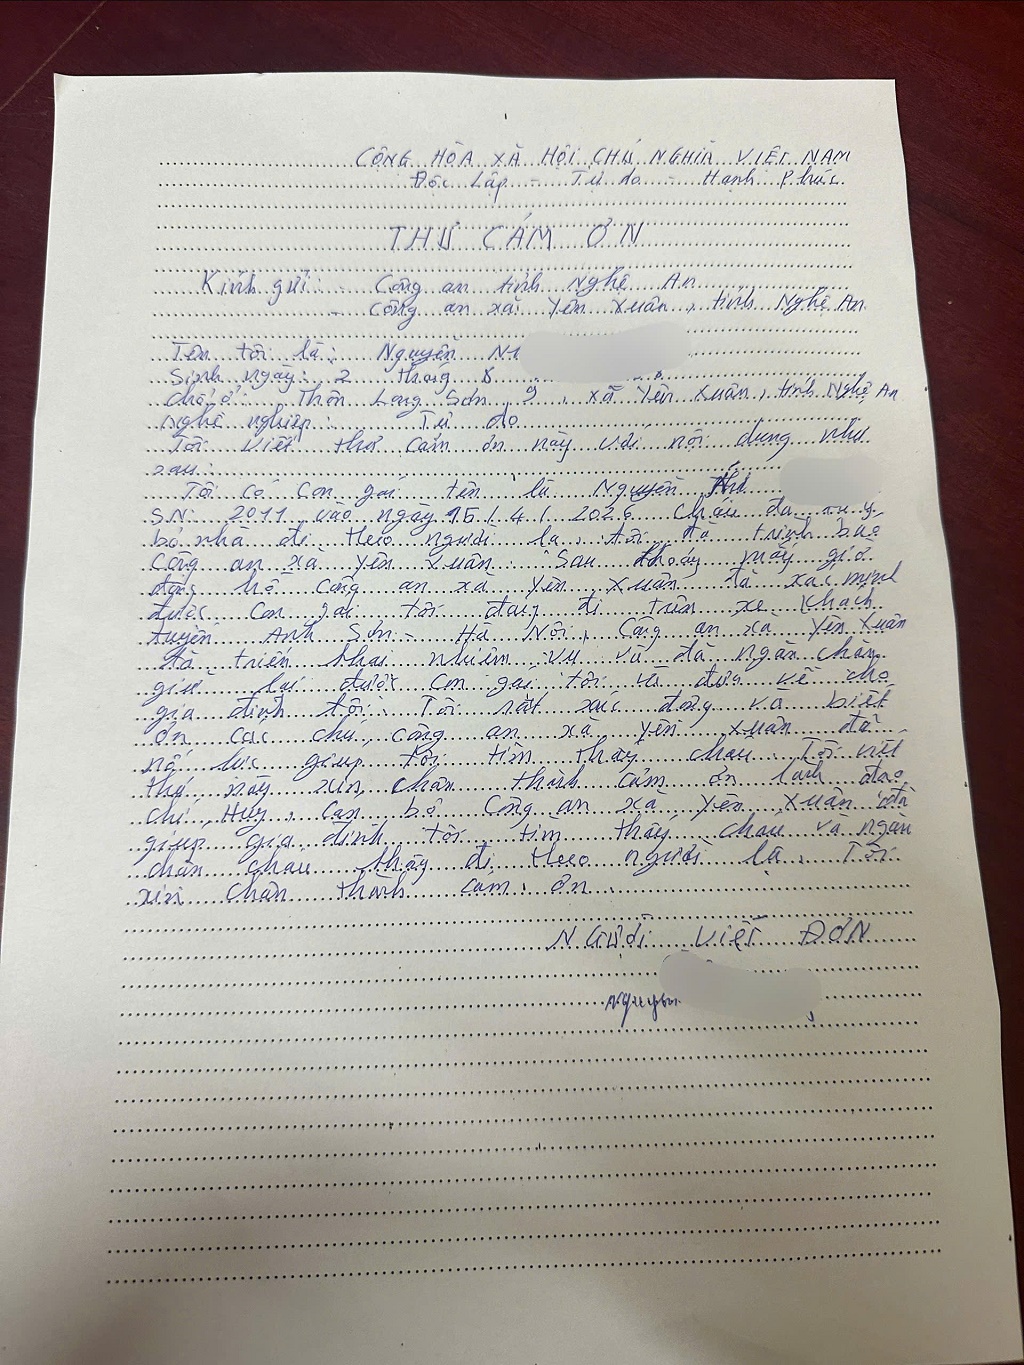 CỘNG HÒA XÃ HỘI CHỦ NGHĨA VIỆT NAM
Độc Lập - Tự do - Hạnh Phúc
THƯ CẢM ƠN
Kính gửi: Công an tỉnh Nghệ An
- Công an xã Yên Xuân, tỉnh Nghệ An
Tên tôi là: Nguyễn
Sinh ngày: 2 tháng 8
Chỗ ở: Thôn Long Sơn 9, xã Yên Xuân, tỉnh Nghệ An
Nghề nghiệp: Tự do
Tôi viết thư cảm ơn này với nội dung như
sau:
Tôi có con gái tên là Nguyễn Thị
SN: 2011 vào ngày 15/4/2026 cháu đã tự ý
bỏ nhà đi theo người lạ, tôi đã trình báo
Công an xã Yên Xuân. Sau khoảng mấy giờ
đồng hồ công an xã Yên Xuân đã xác minh
được con gái tôi đang đi trên xe khách
tuyến Anh Sơn - Hà Nội, Công an xã Yên Xuân
đã triển khai nhiệm vụ và đã ngăn chặn
giữ lại được con gái tôi và đưa về cho
gia đình tôi. Tôi rất xúc động và biết
ơn các chú công an xã Yên Xuân đã
nỗ lực giúp tôi tìm thấy cháu. Tôi viết
thư này xin chân thành cảm ơn lãnh đạo
chỉ Huy, cán bộ Công an xã Yên Xuân đã
giúp gia đình tôi tìm thấy cháu và ngăn
chặn cháu thấy đi theo người lạ. Tôi
xin chân thành cảm ơn.
NGƯỜI VIẾT ĐƠN
Nguyễn